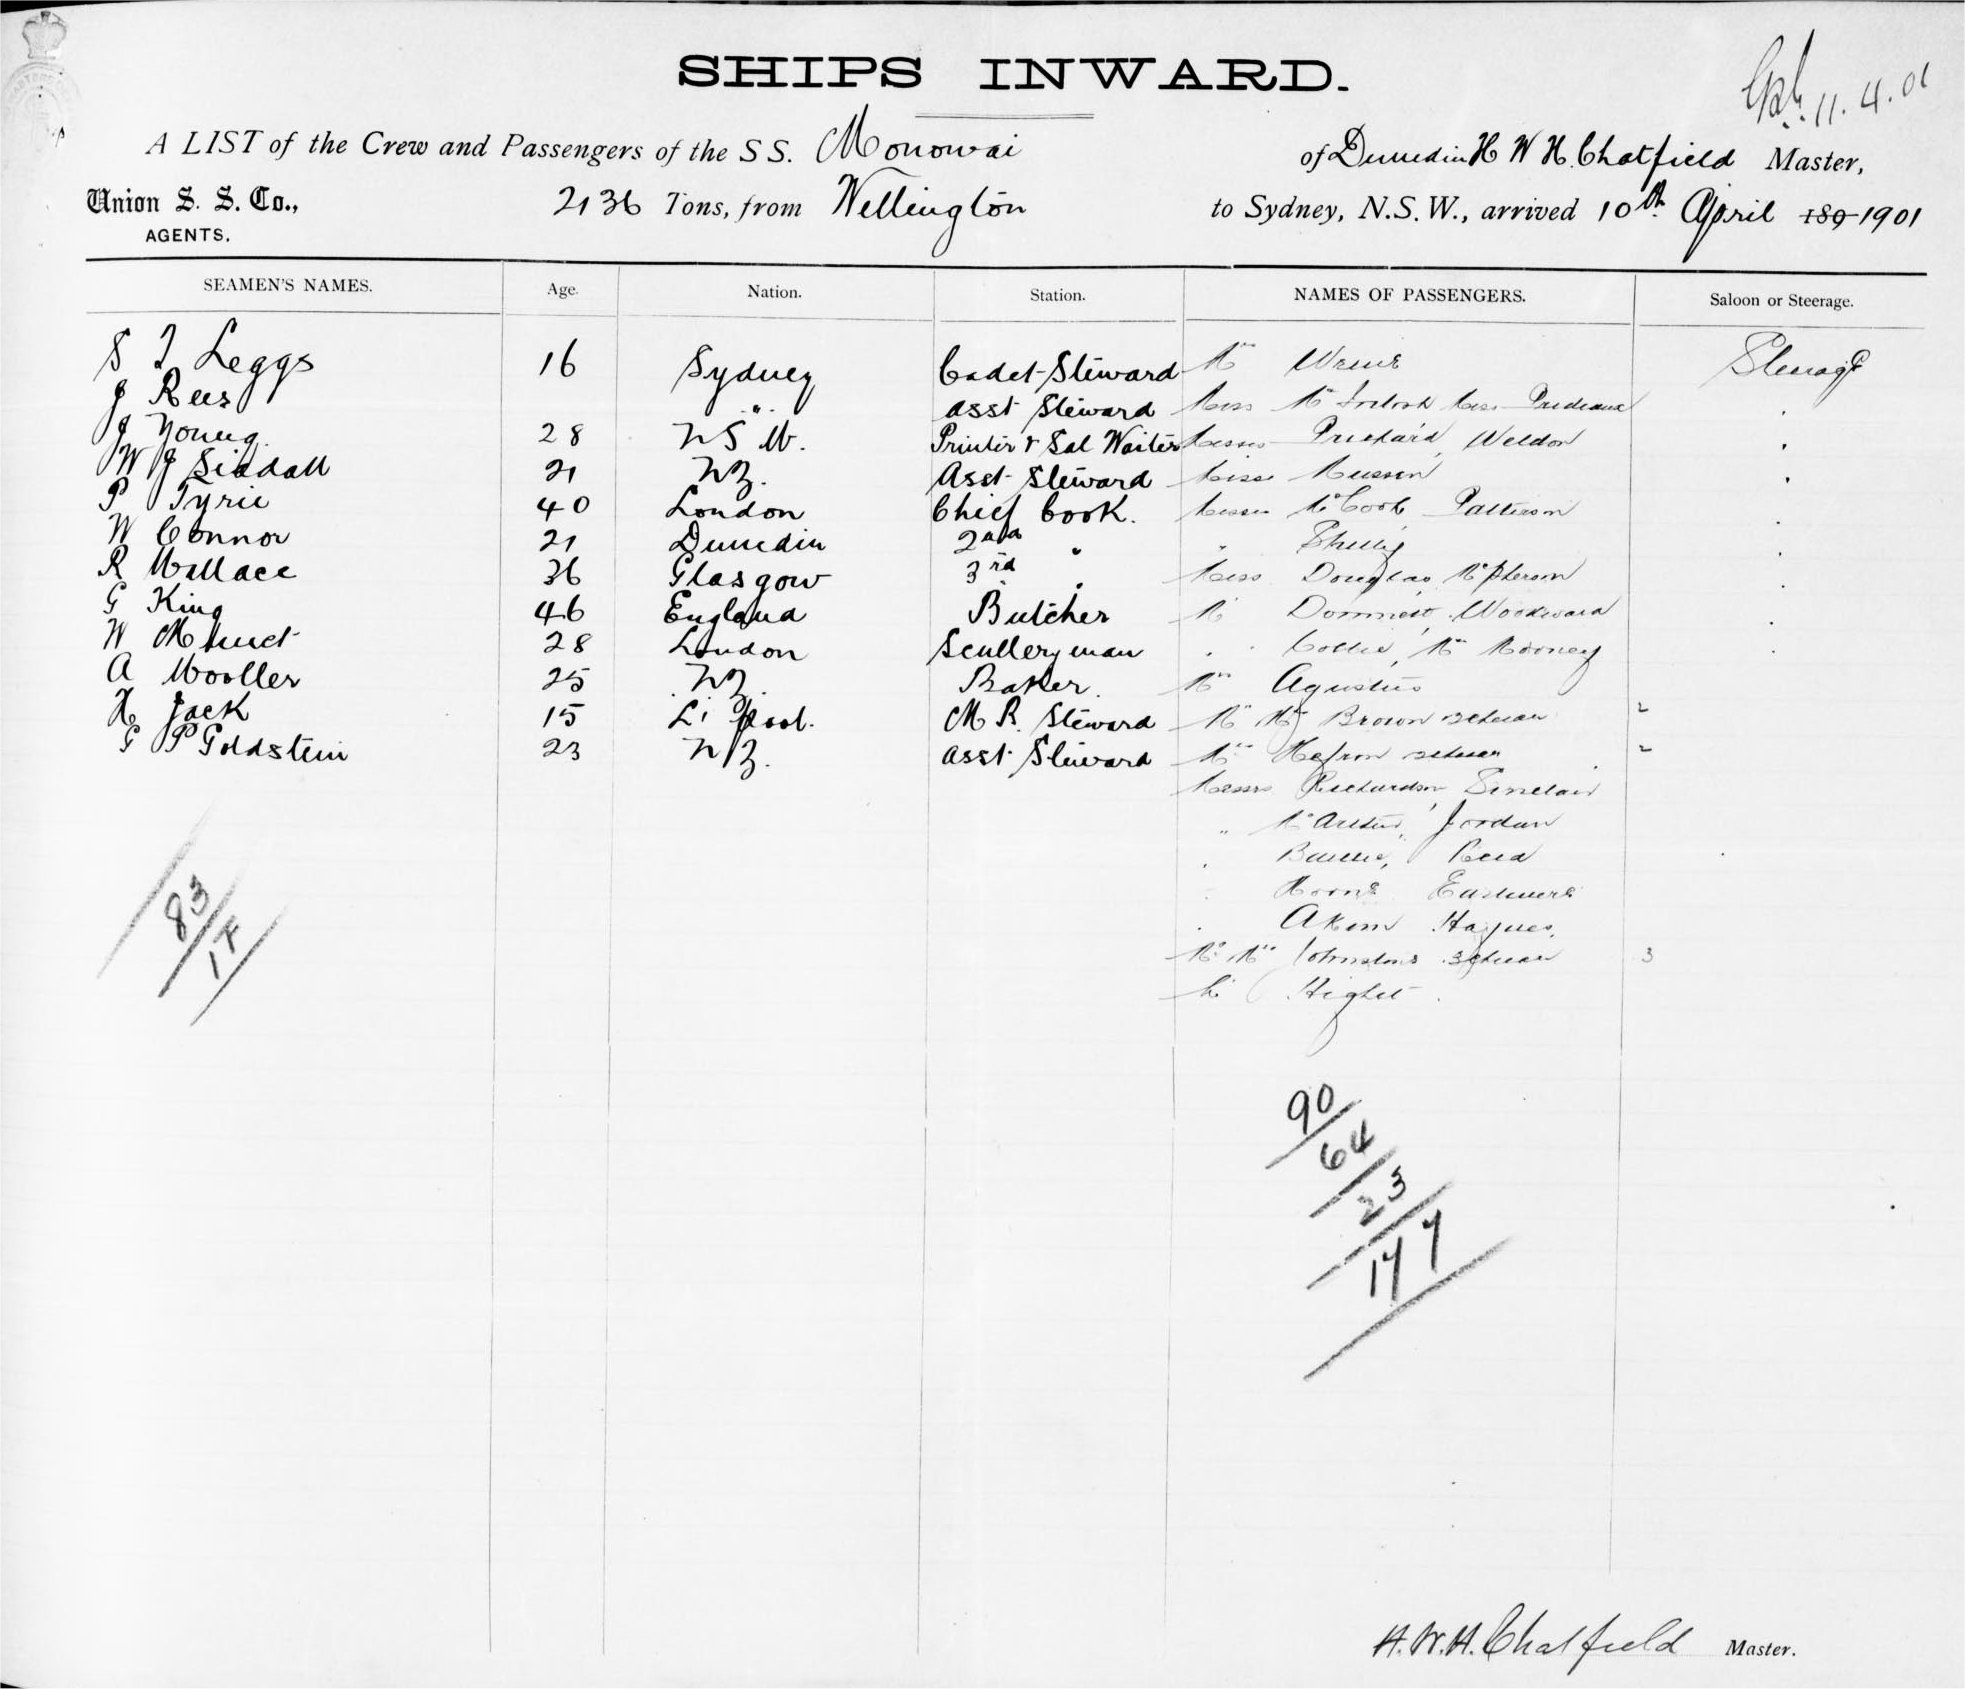 SHIPS INWARD.
11.4.01
A LIST of the Crew and Passengers of the SS. Monowai of Dunedin H W H. Chatfield Master,
Union S. S. Co., 2136 Tons, from Wellington to Sydney, N.S.W., arrived 10th April 189 1901
AGENTS.
SEAMEN'S NAMES. Age. Nation. Station. NAMES OF PASSENGERS. Saloon or Steerage.
S J Leggs 16 Sydney Cadet Steward Mrs Steerage
J Rees " Asst Steward Miss McIntosh Miss Prideaux
J Young. 28 NSW. Printer & Sal Waiter Messrs Prichard, Weldon
W J Siddall 21 NZ. Asst Steward Misses
P Tyrie 40 London Chief Cook. Messrs McCook Patterson
W Connor 21 Dunedin 2nd " "
R Wallace 36 Glasgow 3rd " Miss Douglas, McPherson
G King 46 England Butcher Mr Woodward
W 28 London Scullery man " " Collie, Mrs Mooney
A Wooller 25 NZ. Baker. Mrs Agustus
H Jack 15 L'pool. M R. Steward Mr Mrs Brown 2 2
G P Goldstein 23 NZ. Asst Steward Mrs Hefron 2
Messrs Richardson, Sinclair
" McArthur, Jordan
" Reid
"
" Akins Haynes.
Mr Mrs Johnstone 3 3
Mr Hight
83
1F
90
64
23
177
H. W. H. Chatfield Master.